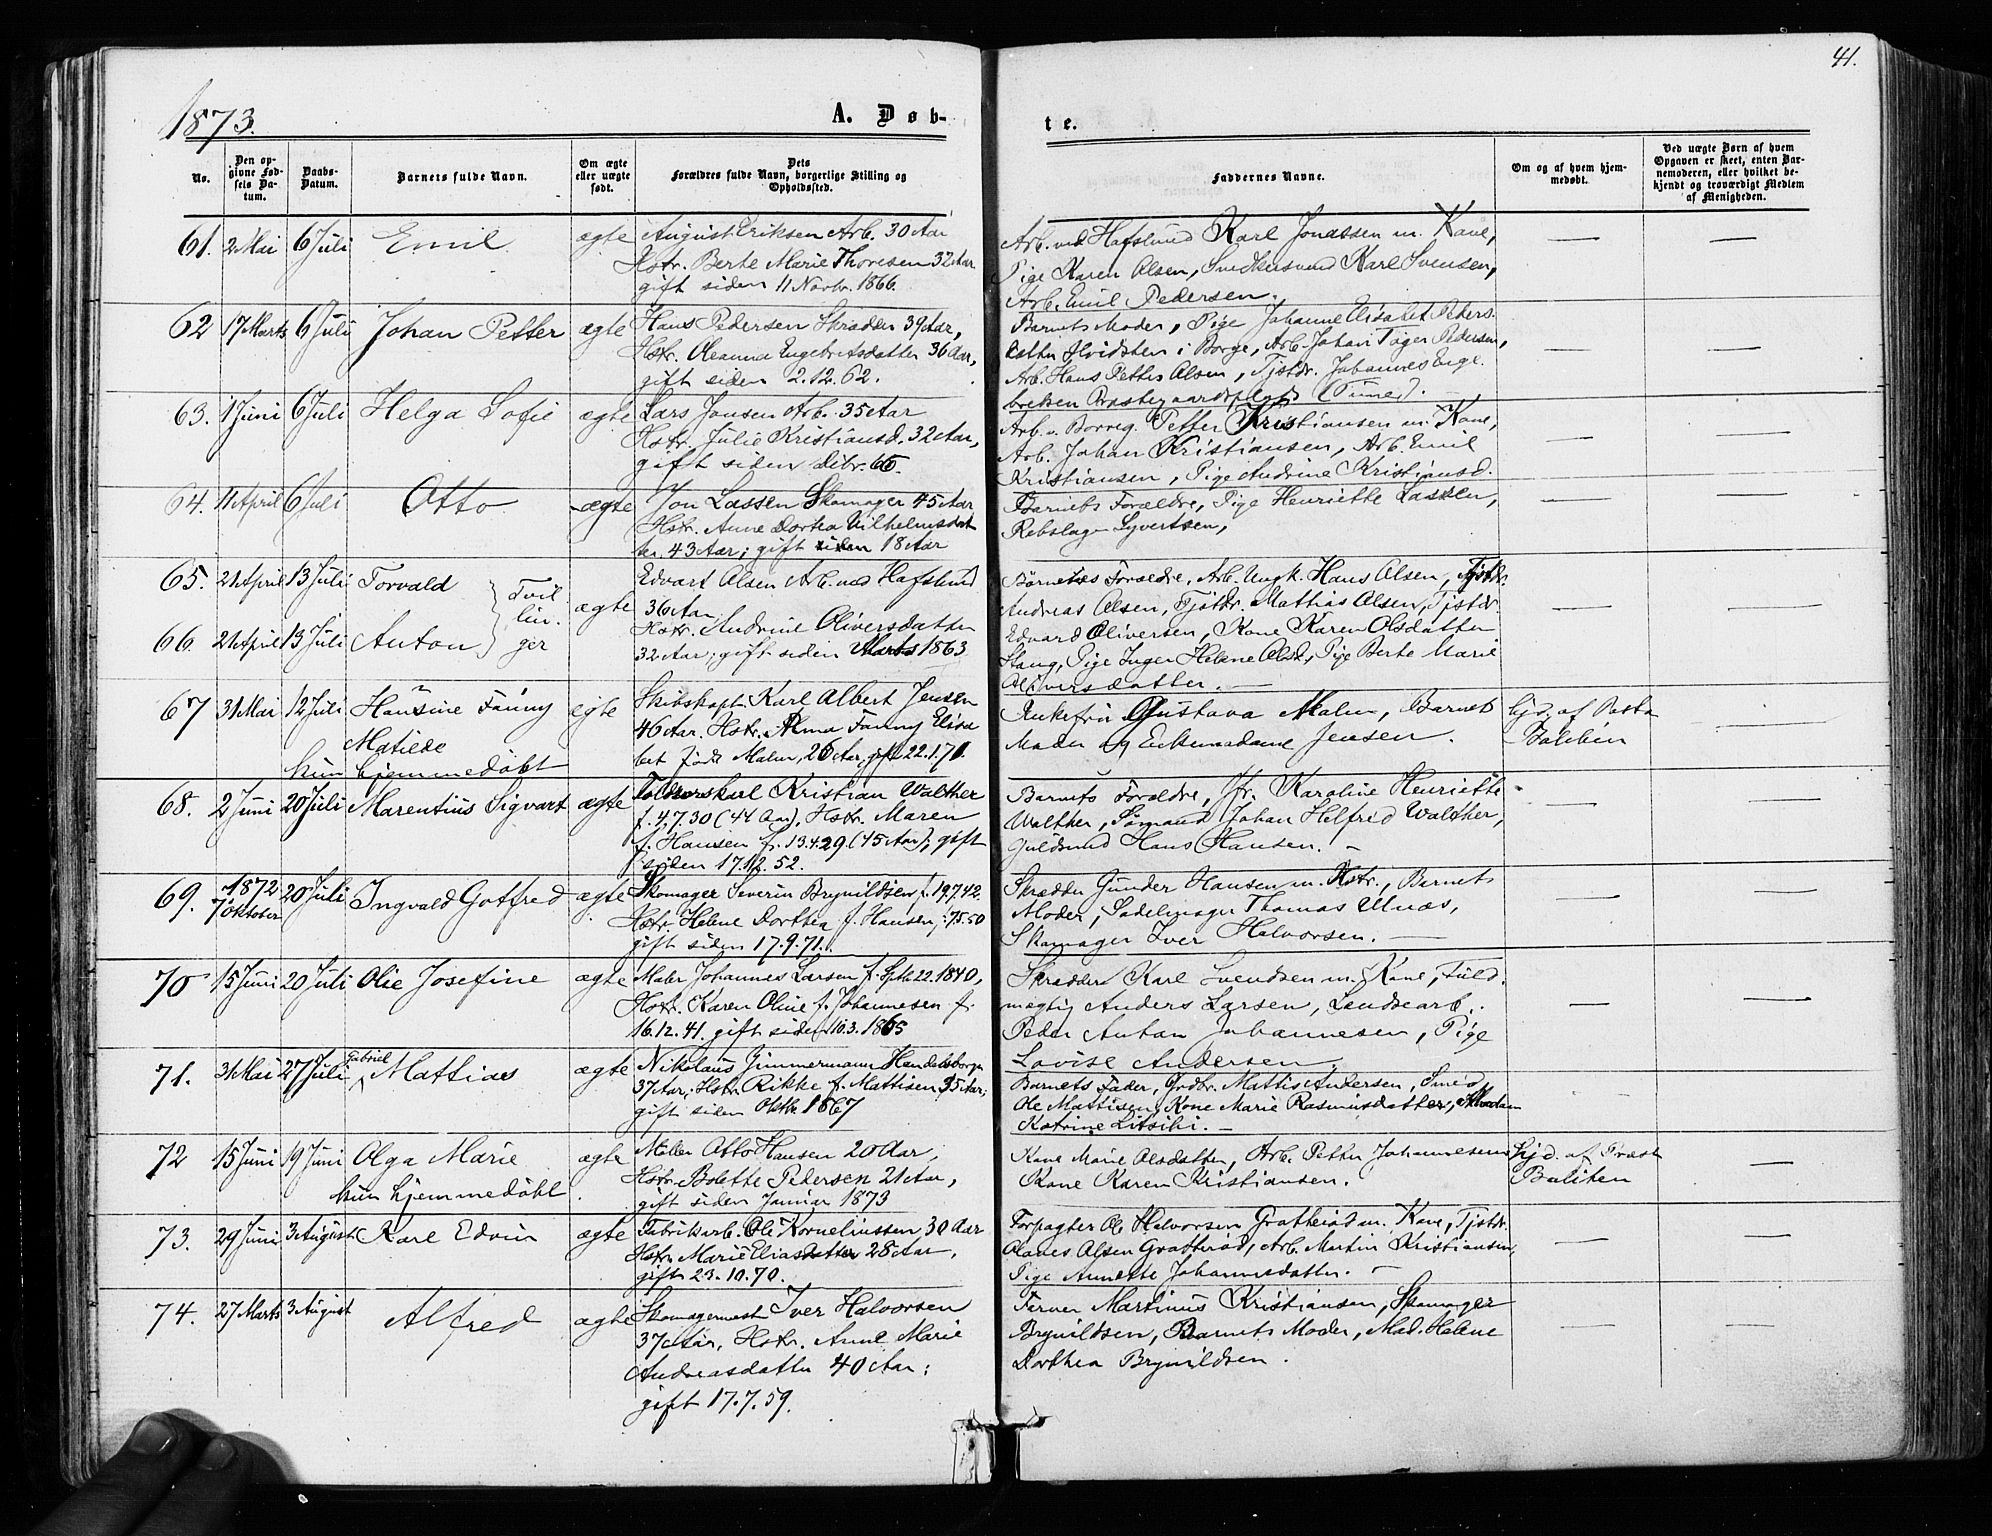 41.
1873.
A. Døb-
te.
No.
Den op-
givne Fød-
sels Da-
tum.
Daabs-
Datum.
Barnets fulde Navn.
Om ægte
eller uægte
født.
Dets
Forældres fulde Navn, borgerlige Stilling og
Opholdssted.
Faddernes Navne.
Om og af hvem hjem-
medøbt.
Ved uægte Børn af hvem
Opgaven er skeet, enten Bar-
nemoderen, eller hvilket be-
kjendt og troværdigt Medlem
af Menigheden.
61. 2 Mai 6 Juli Emil ægte August Eriksen Arb. 30 Aar
Hstr. Berte Marie Thoresen 32 Aar
gift siden 11 Novbr. 1866.
Arb. ved Hafslund Karl Jonassen m. Kone,
Pige Karen Olsen, Snedkersvend Karl Svensen,
Arb. Emil Pedersen.
62 17 Marts 6 Juli Johan Petter ægte Hans Pedersen Skrædder 39 Aar,
Hstr. Oleanna Engebretsdatter 36 Aar,
gift siden 2.12.62.
Barnets Moder, Pige Johanne Elisabet Peders-
datter Hvidsten i Borge, Arb. Johan Tiger Pedersen,
Arb. Hans Petter Olsen, Tjstdr. Johannes Enge-
bretsen Præstegaardsplads (Tune).
63. 1 Juni 6 Juli Helga Sofie ægte Lars Jonsen Arb. 35 Aar
Hstr. Julie Kristiansd. 32 Aar,
gift siden Debr. 65.
Arb. v. Borreg. Petter Kristiansen m. Kone,
Arb. Johan Kristiansen, Arb. Emil
Kristiansen, Pige Andrine Kristiansd.
64. 11 April 6 Juli Otto ægte Jon Lassen Skomager 45 Aar
Hstr. Anne Dortea Vilhelmsdat
ter 43 Aar; gift siden 18 Aar
Barnets Forældre, Pige Henriette Lassen,
Rebslager Syvertsen,
65. 21 April 13 Juli Torvald
66. 21 April 13 Juli Anton
Tvil-
lin-
ger
ægte
Edvart Olsen Arb. ved Hafslund
36 Aar
Hstr. Andrine Oliversdatter
32 Aar; gift siden Marts 1863
Børnenes Forældre, Arb. Ungk. Hans Olsen, Tjstdr.
Andreas Olsen, Tjstdr. Mattias Olsen, Tjstdr.
Edvard Oliversen, Kone Karen Olsdatter
Stang, Pige Inger Helene Olsd., Pige Berte Marie
Oliversdatter.
67 31 Mai 12 Juli Hansine Fanny
Matilde
kun hjemmedøbt
ægte
Skibskapt. Karl Albert Jensen
46 Aar. Hstr. Alma Fanny Elisa
bet født Malm, 26 Aar, gift 22.1.71.
Enkefru Gustava Malm, Barnets
Moder og Enkemadame Jensen.
hjd. af Pastor
Balchen
68. 2 Juni 20 Juli Marentius Sigvart ægte Kristian Walther
f. 4.7.30 (44 Aar), Hstr. Maren
f. Hansen f. 13.4.29 (45 Aar); gift
siden 17.12.52.
Barnets Forældre, Jfr. Karoline Henriette
Walther, Sømand Johan Helfred Walther,
Guldsmed Hans Hansen.
69. 1872
7 Oktober 20 Juli Ingvald Gotfred ægte Skomager Severin Brynildsen f. 19.7.42.
Hstr. Helene Dorthea f. Hansen, : 7.5.50
gift siden 17.9.71.
Skrædder Gunder Hansen m. Hstr., Barnets
Moder, Sadelmager Thomas Ulnæs,
Skomager Iver Halvorsen.
70 15 Juni 20 Juli Olie Josefine ægte Maler Johannes Larsen f. Sptb. 22. 1840,
Hstr. Karen Oline f. Johannesen f.
16.12.41. gift siden 10.3.1865
Skrædder Karl Svendsen m. Kone, Fuld-
mægtig Anders Larsen, Landsearb.
Peder Anton Johannesen, Pige
Lovise Andersen.
71. 31 Mai 27 Juli Gabriel
Mattias ægte Nikolaus Gimmermann Handelsborger
37 Aar, Hstr. Rikke f. Mattisen 35 Aar;
gift siden Oktbr. 1867
Barnets Fader, Grdbr. Mattis Andersen, Smed
Ole Mattisen, Kone Marie Rasmusdatter, Madam
Katrine
72 15 Juni 19 Juni Olga Marie
kun hjemmedøbt
ægte
Møller Otto Hansen 20 Aar,
Hstr. Bolette Pedersen 21 Aar,
gift siden Januar 1873
Kone Marie Olsdatter, Arb. Petter Johannesen
Kone Karen Kristiansen.
hjd. af Præst
Balchen
73. 29 Juni 3 August Karl Edvin ægte Fabrikarb. Ole Korneliussen 30 Aar
Hstr. Marie Eliasdatter 28 Aar,
gift 23.10.70.
Forpagter Ole Halvorsen Grotterød m. Kone, Tjstdr.
Olaves Olsen Grotterød, Arb. Martin Kristiansen,
Pige Annette Johannesdatter.
74. 27 Marts 3 August Alfred ægte Skomagermest. Iver Halvorsen
37 Aar, Hstr. Anne Marie
Andreasdatter 40 Aar;
gift 17.7.59.
Farver Martinus Kristiansen, Skomager
Brynildsen, Barnets Moder, Mad. Helene
Dorthea Brynildsen.